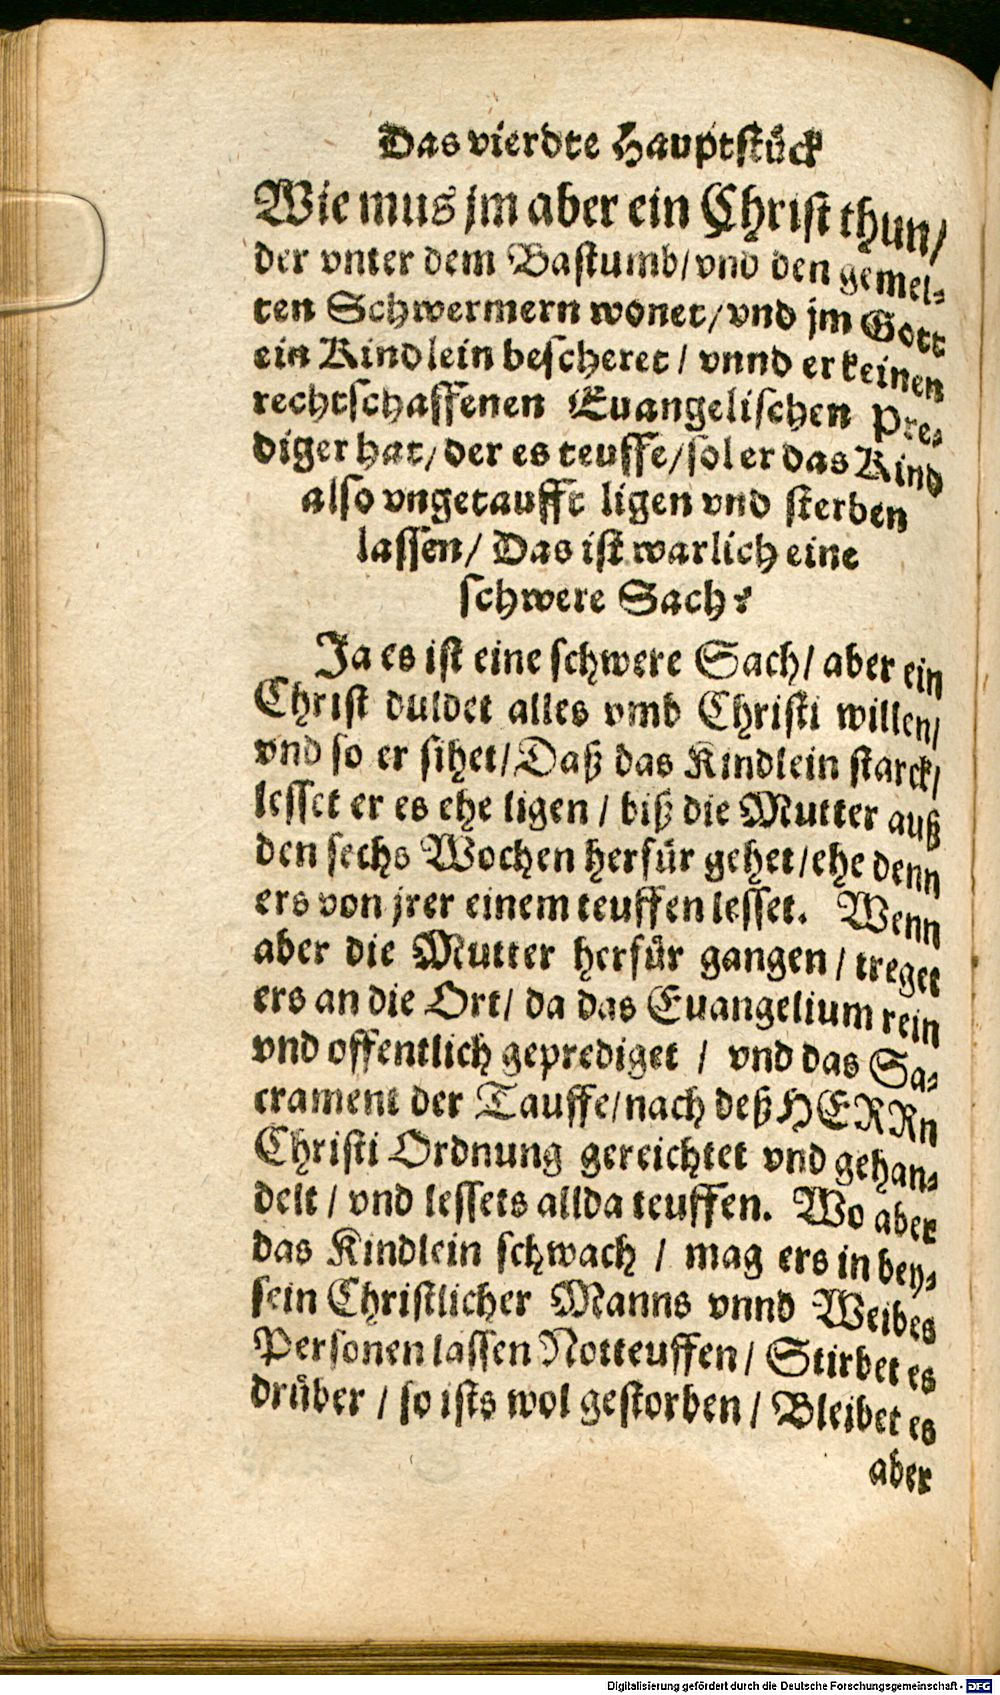 Das vierdte Hauptstück
Wie mus jm aber ein Christ thun/
der vnter dem Bastumb/vnd den gemel-
ten Schwermern wonet/vnd jm Gott
ein Kindlein bescheret/ vnnd er keinen
rechtschaffenen Euangelischen Pre-
diger hat/der es teuffe/sol er das Kind
also vngetaufft ligen vnd sterben
lassen/ Das ist warlich eine
schwere Sach?
Ja es ist eine schwere Sach/ aber ein
Christ duldet alles vmb Christi willen/
vnd so er sihet/Daß das Kindlein starck/
lesset er es ehe ligen/ biß die Mutter auß
den sechs Wochen herfür gehet/ehe denn
ers von jrer einem teuffen lesset. Wenn
aber die Mutter herfür gangen/ treget
ers an die Ort/ da das Euangelium rein
vnd offentlich geprediget/ vnd das Sa-
crament der Tauffe/nach deß HERRn
Christi Ordnung gereichtet vnd gehan-
delt/ vnd lessets allda teuffen. Wo aber
das Kindlein schwach/ mag ers in bey-
sein Christlicher Manns vnnd Weibes
Personen lassen Notteuffen/ Stirbet es
drüber/ so ists wol gestorben/ Bleibet es
aber
Digitalisierung gefördert durch die Deutsche Forschungsgemeinschaft - DFG